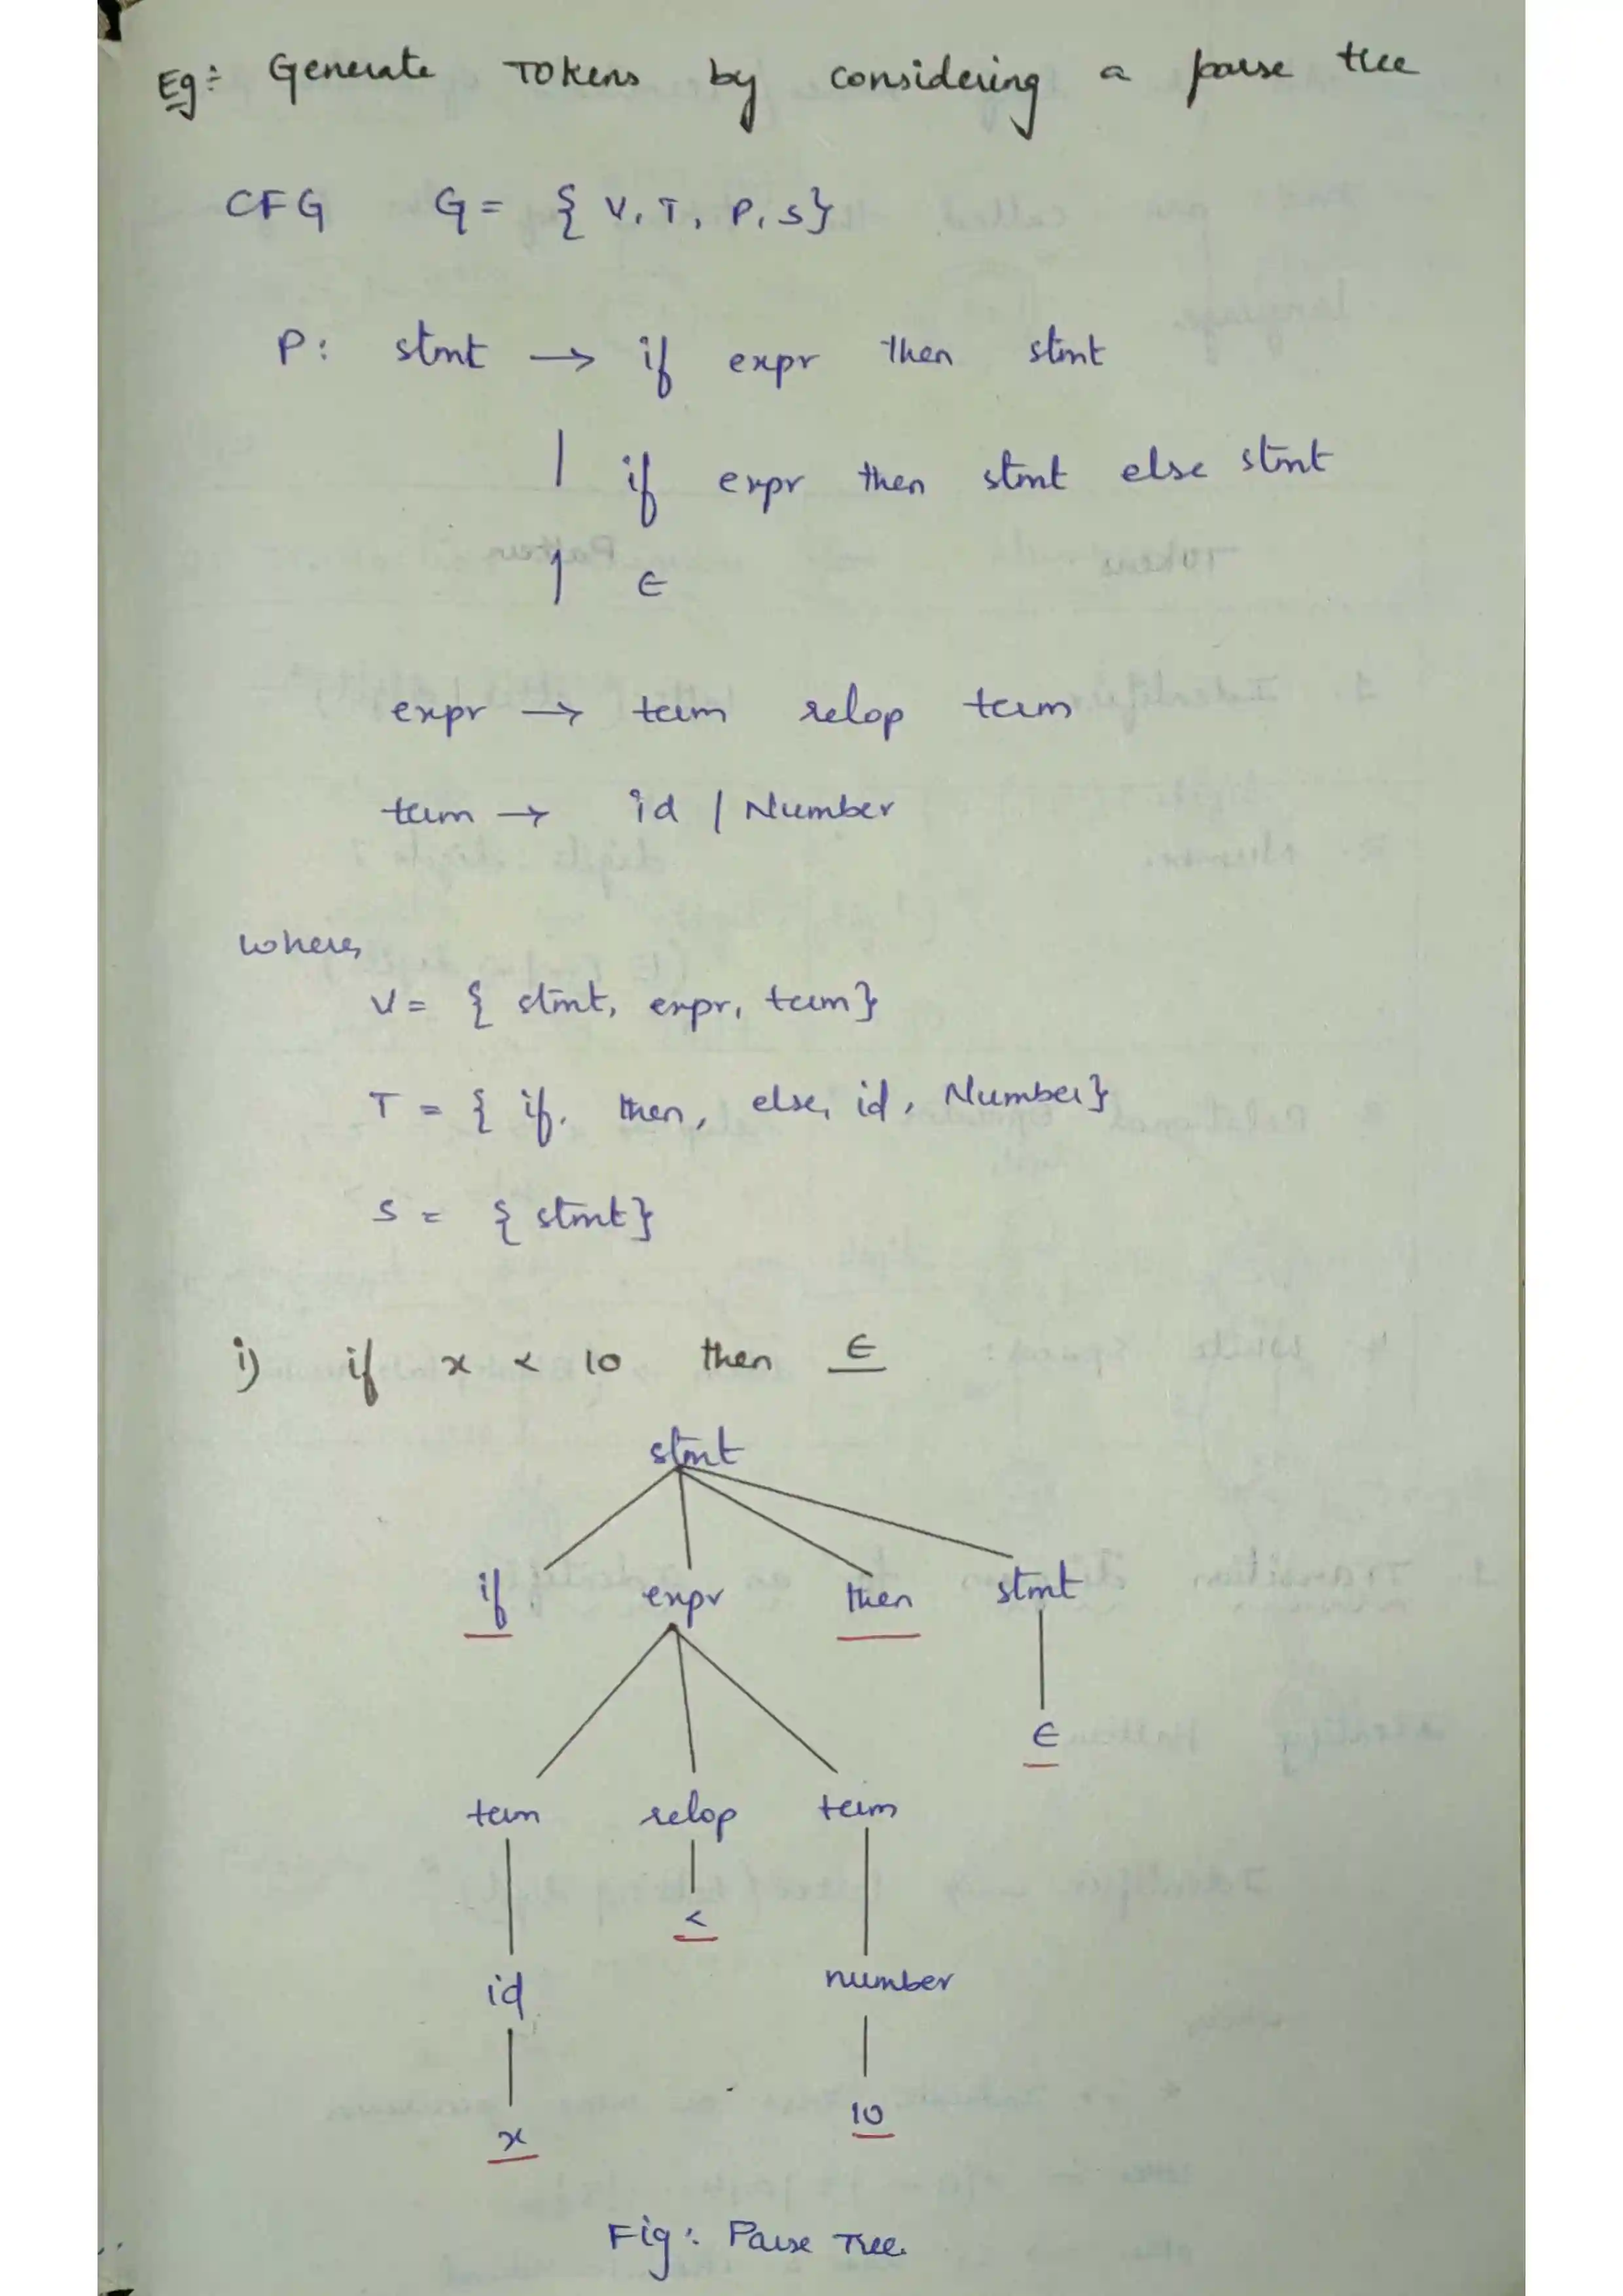 Eg:- Generate Tokens by considering a parse tree
CFG G = { V, T, P, S}
P: stmt → if expr then stmt
| if expr then stmt else stmt
| ϵ
expr → term relop term
term → id | Number
where,
V = { stmt, expr, term}
T = { if, then, else, id, Number}
S = { stmt}
i) if x < 10 then ϵ
stmt
if expr then stmt
ϵ
term relop term
<
id number
x 10
Fig: Parse Tree